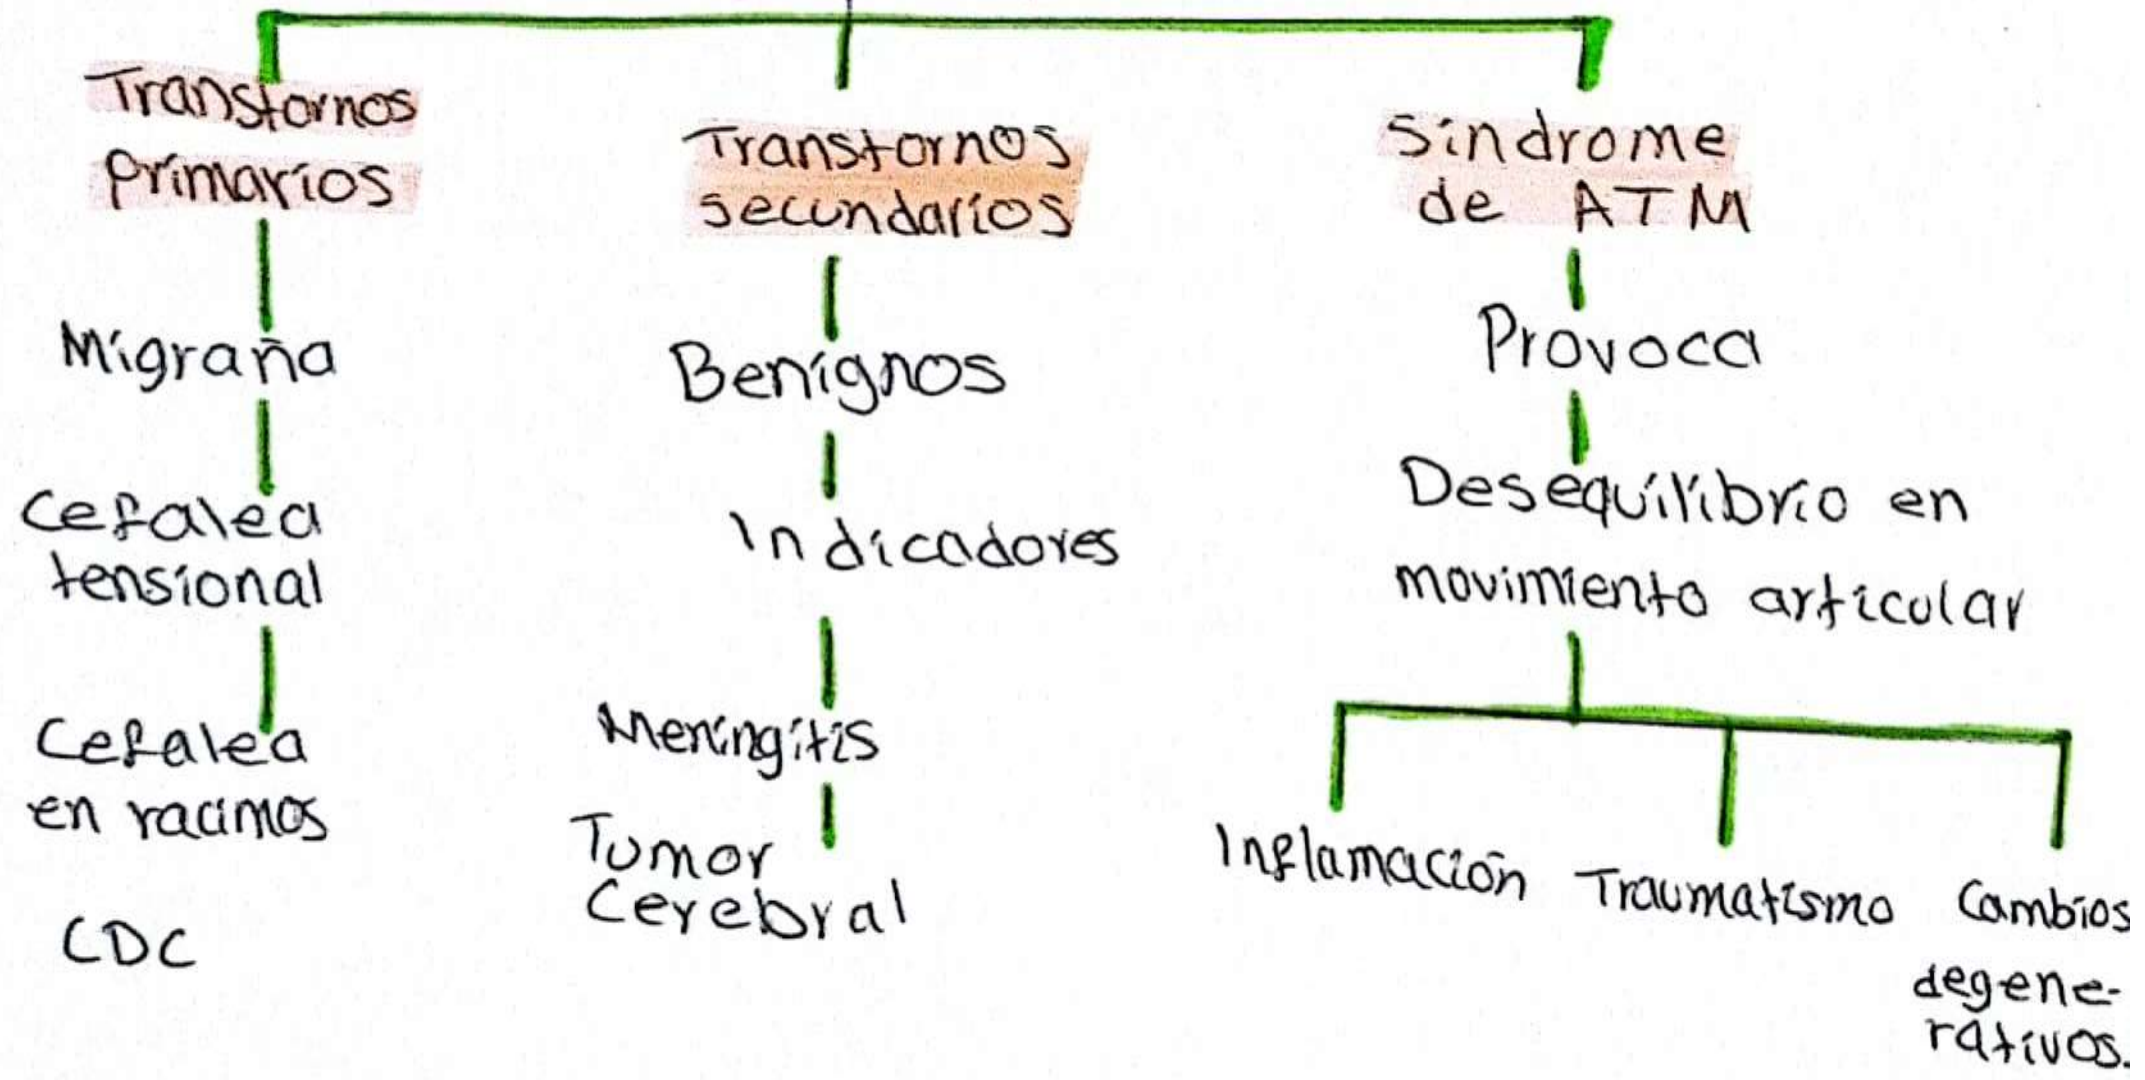 Transtornos
primarios
Migraña
Cefalea
tensional
Cefalea
en racimos
CDC
Transtornos
secundarios
Benignos
Indicadores
Meningitis
Tumor
Cerebral
Sindrome
de ATM
Provoca
Desequilibrio en
movimiento articular
Inflamación
Traumatismo
Cambios
degene-
rativos.